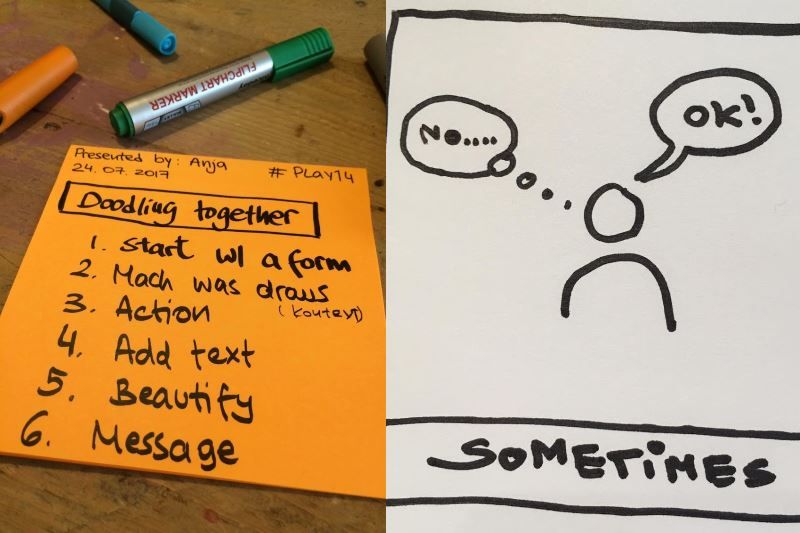 FLIPCHART MARKER
Presented by: Anja
24.07.2017
# PLAY14
Doodling together
1. Start w/ a form
2. Mach was draus
(Kontext)
3. Action
4. Add text
5. Beautify
6. Message
NO.....
OK!
SOMETIMES